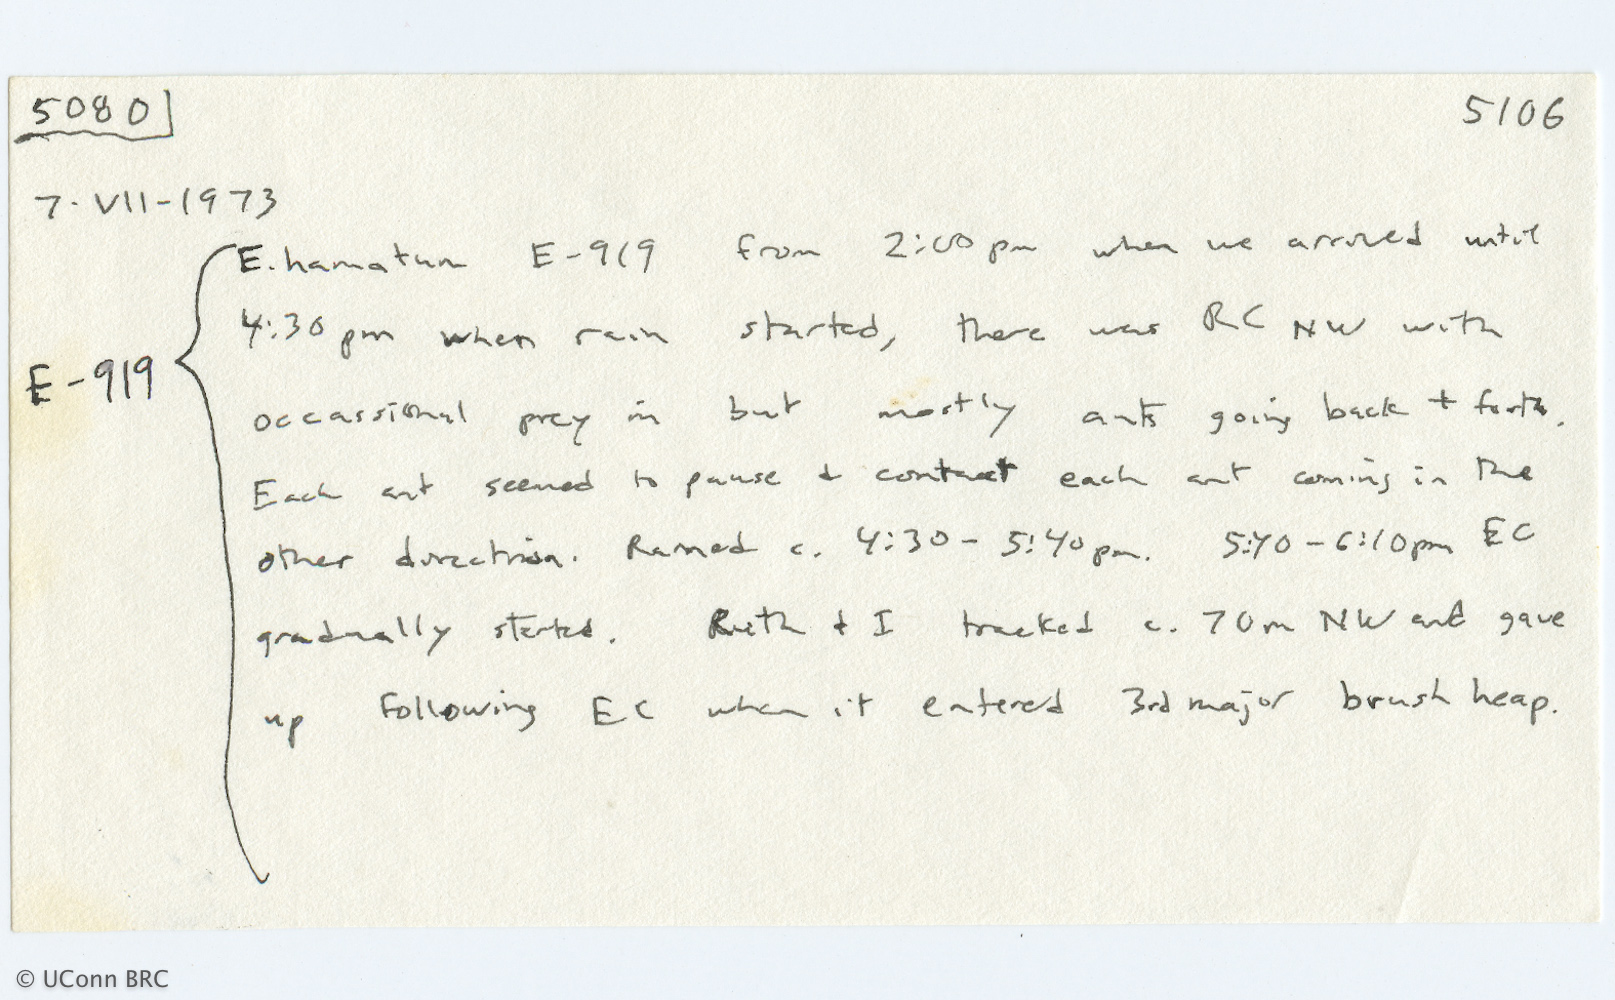 5080 5106
7-VII-1973
E. hamatum E-919 from 2:00 pm when we arrived until
4:30 pm when rain started, there was RC NW with
E-919
occassional prey in but mostly ants going back + forth.
Each ant seemed to pause + contact each ant coming in the
other direction. Rained c. 4:30 - 5:40 pm. 5:40 - 6:10 pm EC
gradually started. Ruth + I tracked c. 70 m NW and gave
up following EC when it entered 3rd major brush heap.
© UConn BRC